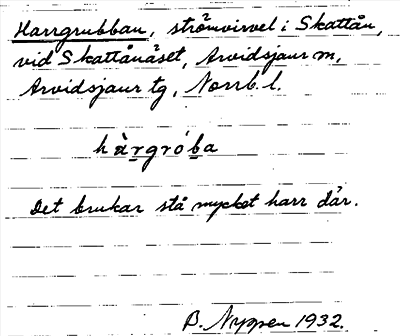 Harrgrubban, strömvirvel i Skattån,
vid Skattånäset, Arvidsjaur m,
Arvidsjaur tg, Norrb. l.
hàrgróba
Det brukar stå mycket harr där.
B. Nyppen 1932.